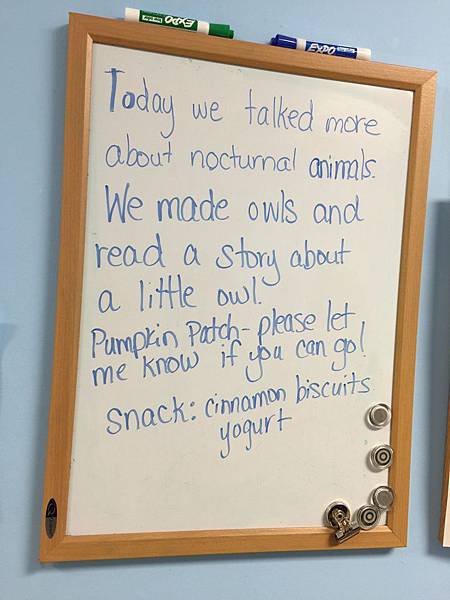 EXPO
EXPO
Today we talked more
about nocturnal animals.
We made owls and
read a story about
a little owl.
Pumpkin Patch- please let
me know if you can go!
Snack: cinnamon biscuits
yogurt